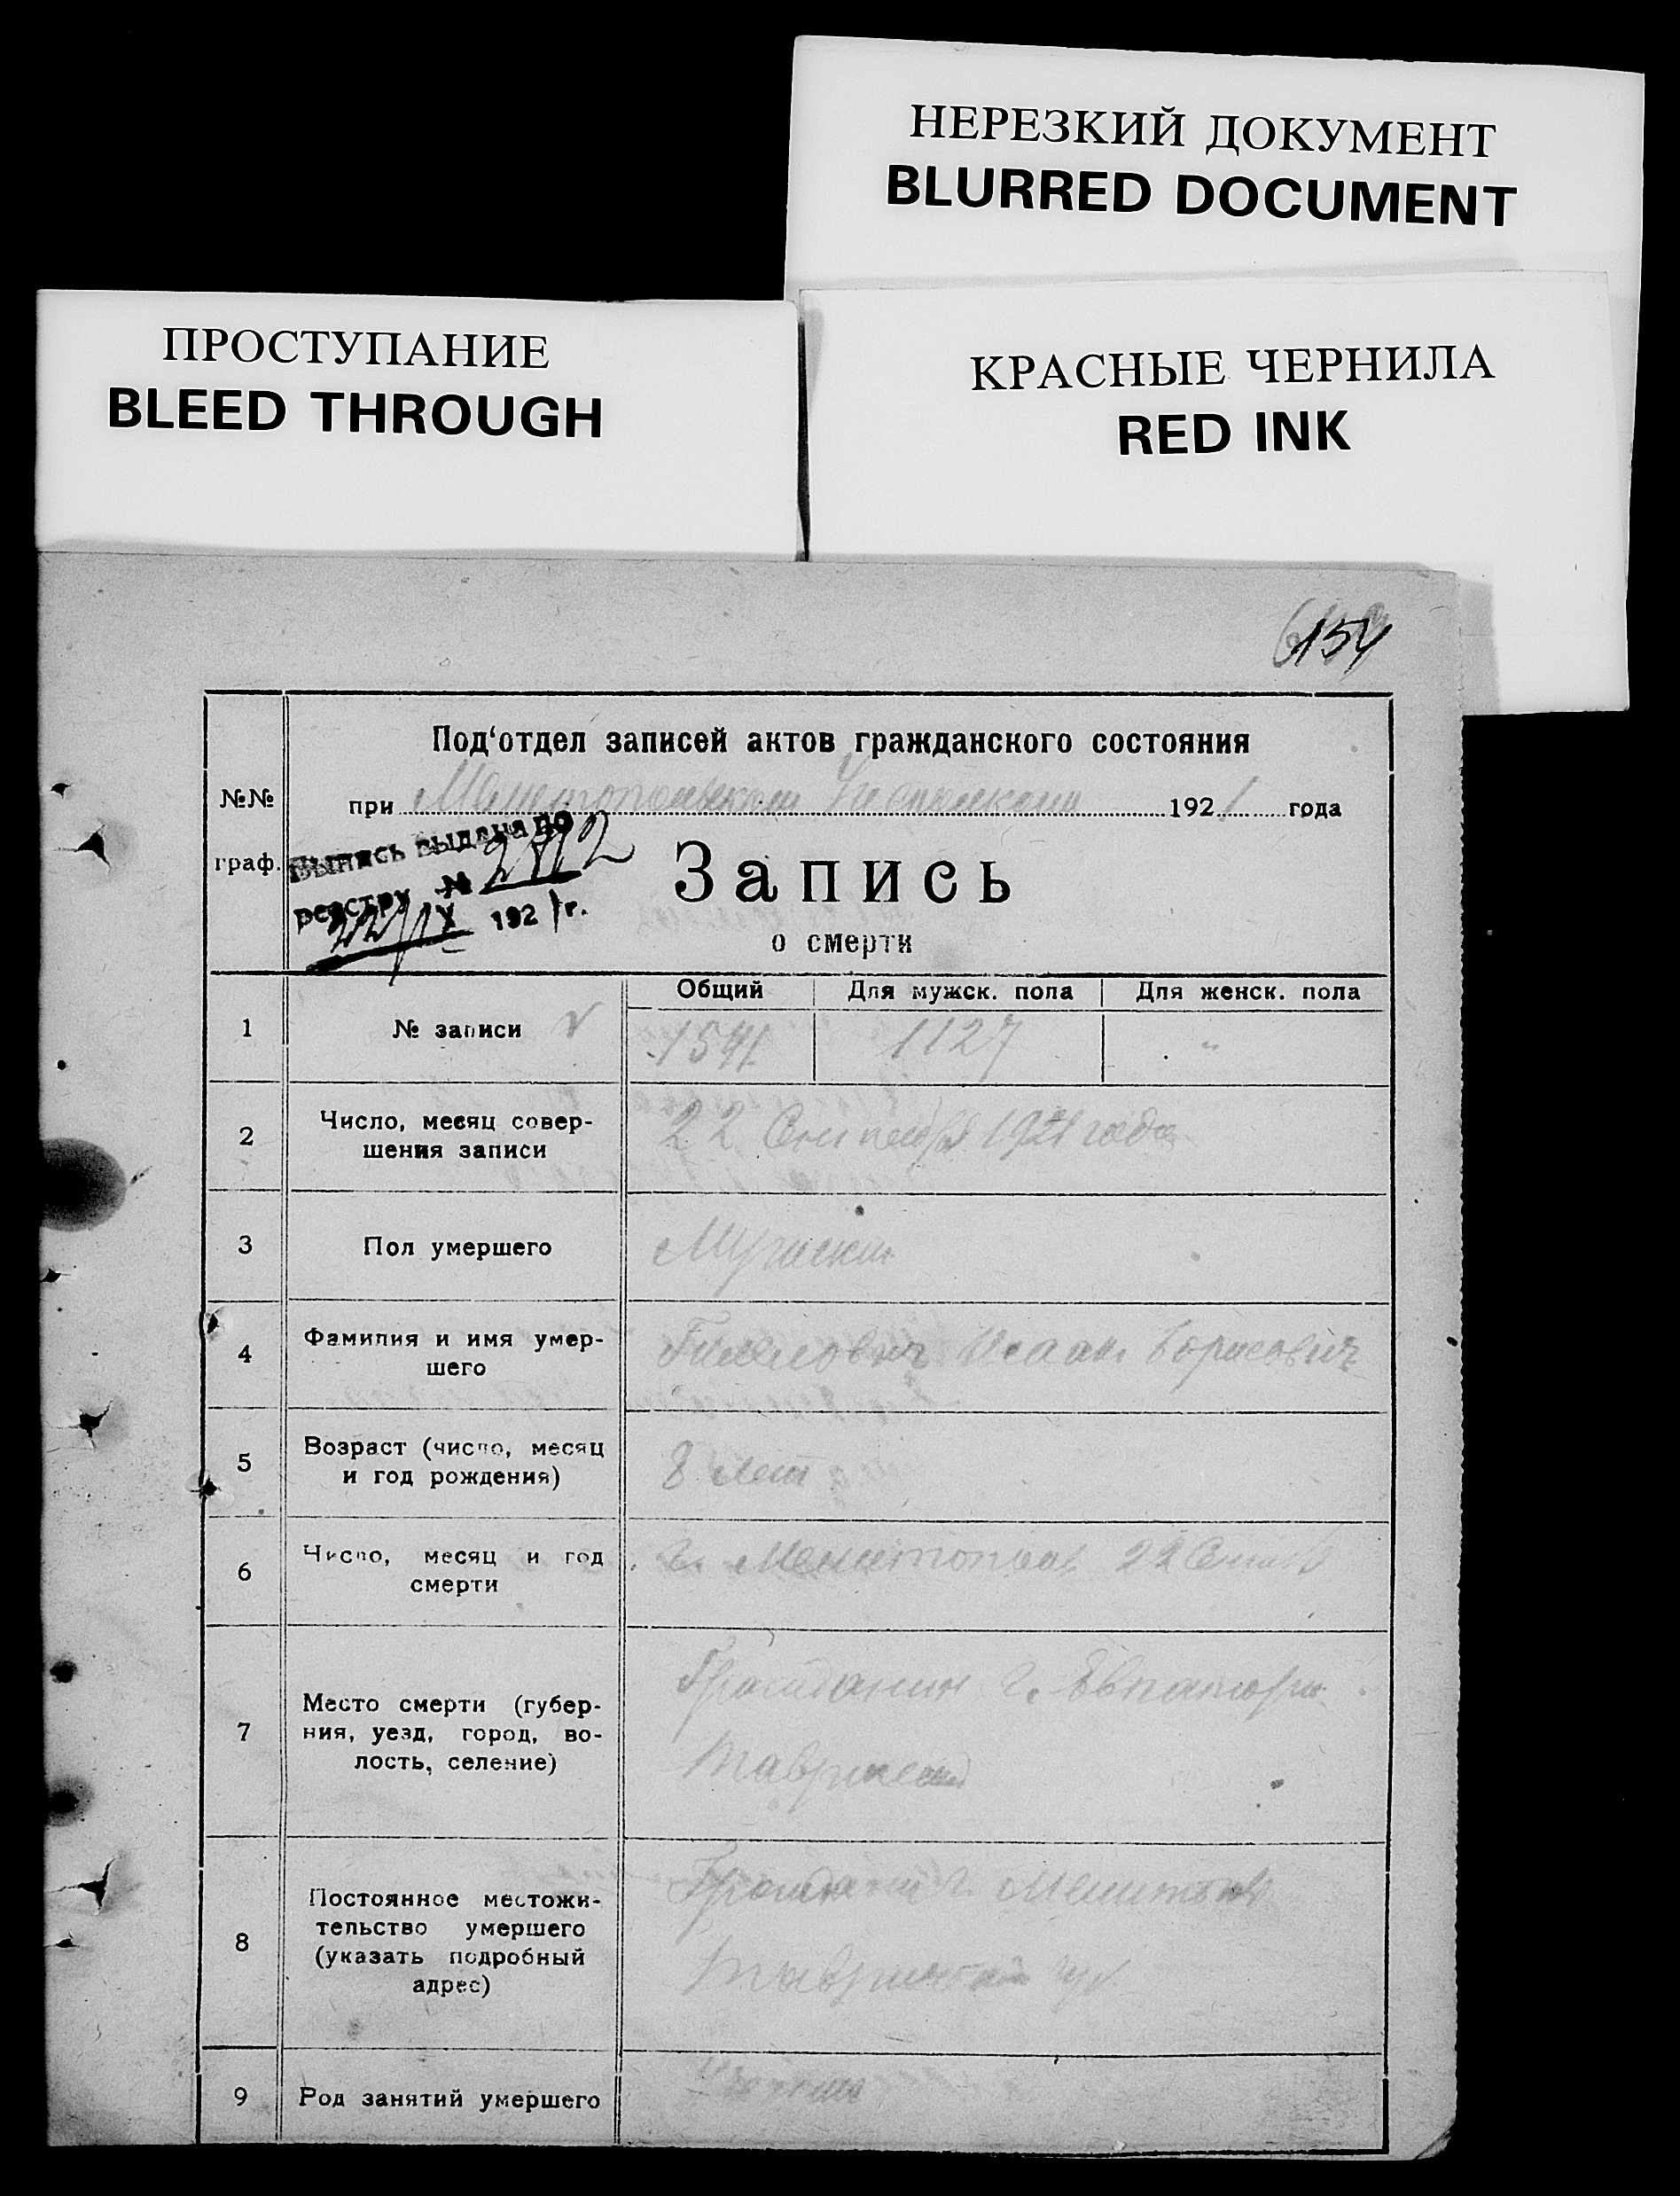 НЕРЕЗКИЙ ДОКУМЕНТ
BLURRED DOCUMENT
ПРОСТУПАНИЕ
BLEED THROUGH
КРАСНЫЕ ЧЕРНИЛА
RED INK
154
Под‘отдел записей актов гражданского состояния
№№
граф.
при Мелитопольском 1921 года
Выпись выдана по
реестру №
22/IX 1921 г.
Запись
о смерти
Общий Для мужск. пола Для женск. пола
1 № записи 1541 1127 "
2 Число, месяц совер-
шения записи
22 Сентября 1921 года
3 Пол умершего Мужской
4 Фамилия и имя умер-
шего
Исаак Борисович
5 Возраст (число, месяц
и год рождения)
8 лет
6 Число, месяц и год
смерти
г. Мелитополь 22 Сент
7 Место смерти (губер-
ния, уезд, город, во-
лость, селение)
Гражданин г. Евпатори
Таврической
8 Постоянное местожи-
тельство умершего
(указать подробный
адрес)
г. Мелитополь
Таврической губ
9 Род занятий умершего